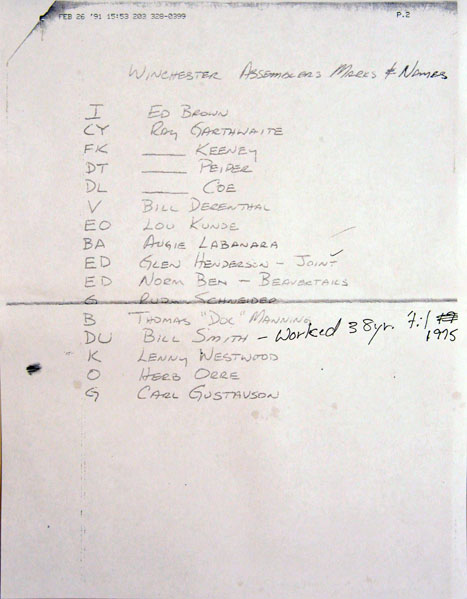 FEB 26 '91 15:53 203 328-0399 P.2
WINCHESTER ASSEMBLERS MARKS & NAMES
I ED BROWN
CY RAY GARTHWAITE
FK ____ KEENEY
DT ____ PEIPER
DL ____ COE
V BILL DERENTHAL
EO LOU KUNDE
BA AUGIE LABANARA
ED GLEN HENDERSON - JOINT
ED NORM BEN - BEAVERTAILS
G RUDY SCHNEIDER
B THOMAS "DOC" MANNING
DU BILL SMITH - Worked 38yr. Til 1975
K LENNY WESTWOOD
O HERB ORRE
G CARL GUSTAVSON